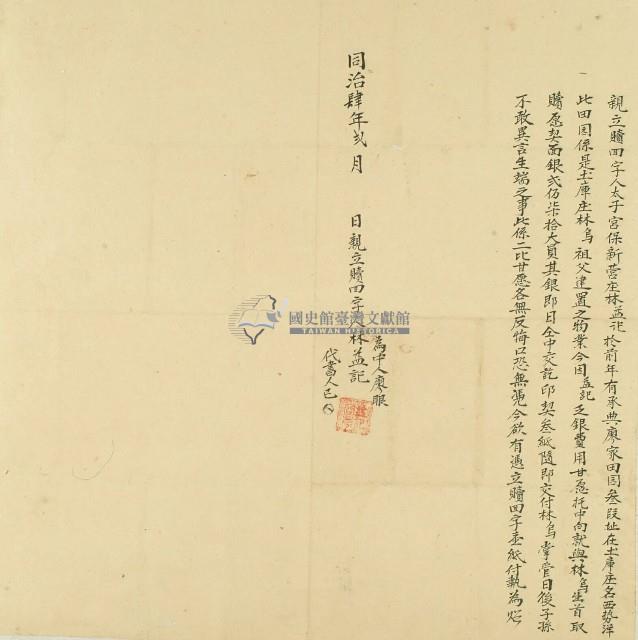 親立贖回字人太子宮保新营庄林益記於前年有承典廖家田園叁叚址在土庫庄名西勢洋
此田園係是土庫庄林烏祖父建置之物業今因益記乏銀費用甘愿托中向就與林烏出首取
贖愿契面銀弍佰柒拾大員其銀即日仝中交訖印契叁紙隨即交付林烏掌管日後子孫
不敢異言生端之事此係二比甘愿各無反悔口恐無凭今欲有憑立贖回字壹紙付執為炤
同治肆年弍月　日親立贖回字人林益記
為中人廖眼
代書人已
國史館臺灣文獻館
TAIWAN HISTORICA